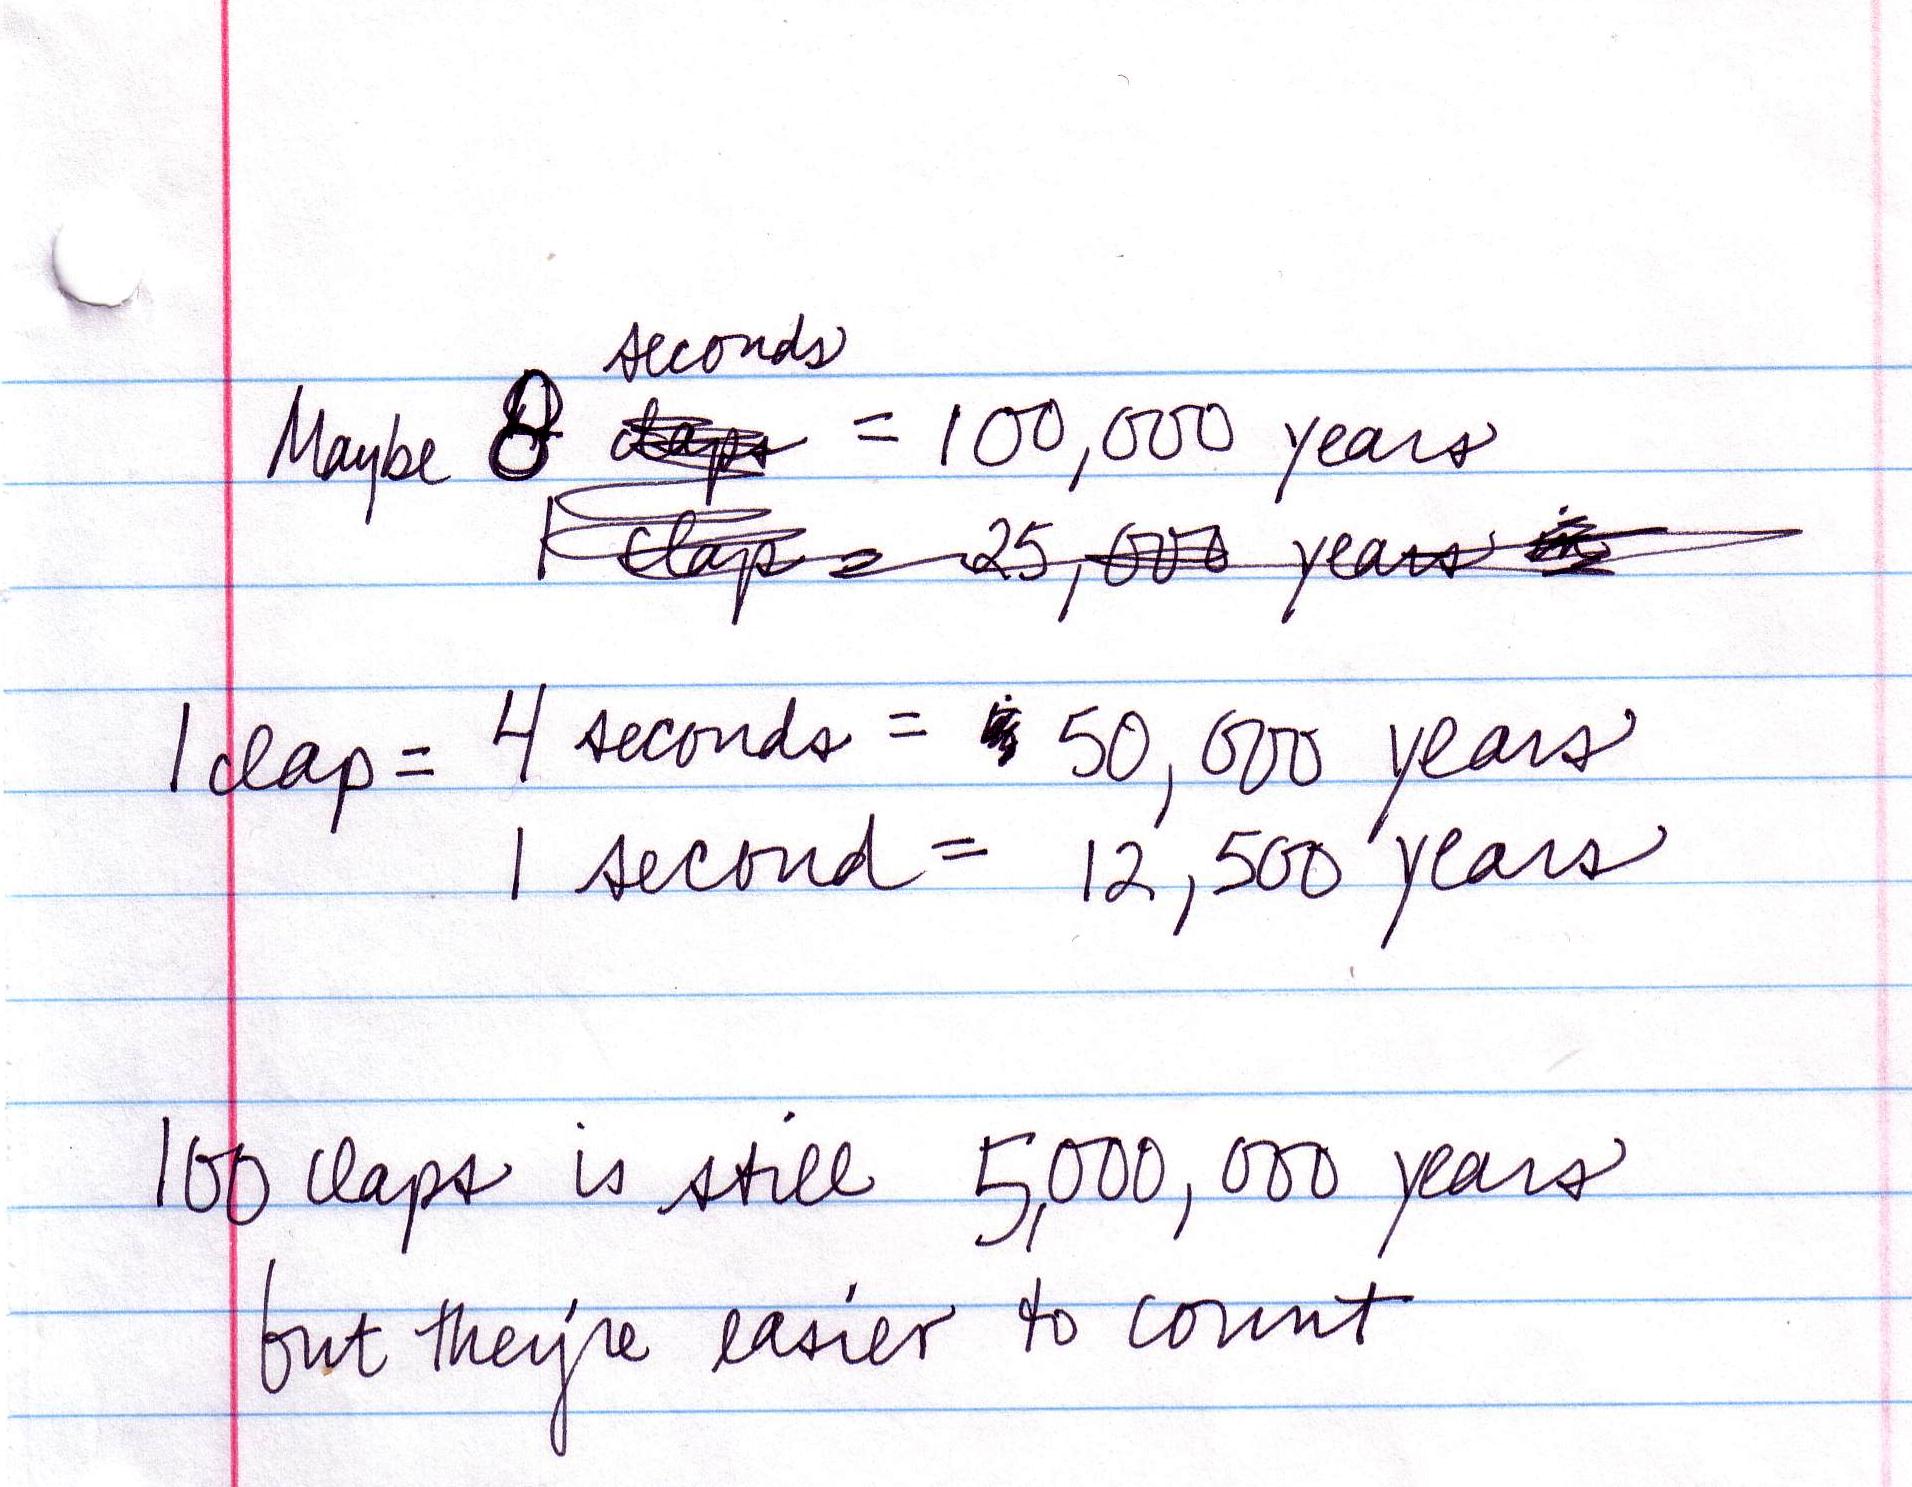 seconds
Maybe 8 claps = 100,000 years
1 clap = 25,000 years
1 clap = 4 seconds = 50,000 years
1 second = 12,500 years
100 claps is still 5,000,000 years
but they're easier to count